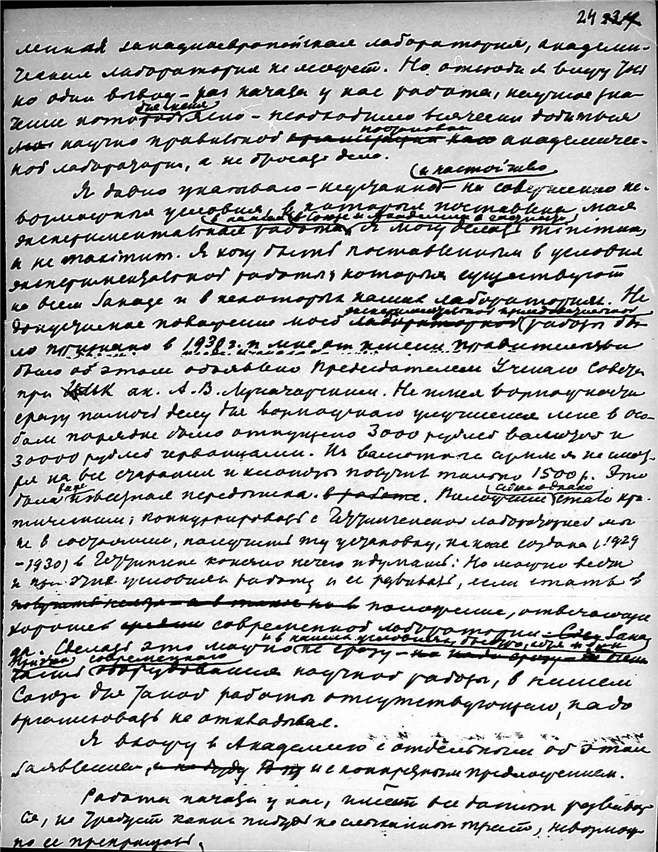 24
ленная западноевропейская лаборатория, академи-
ческая лаборатория не может. Но отсюда я вижу толь
ко один вывод - раз начата у нас работа, научное зна-
чение которой ясно - необходимо всячески добиться
для нея
научно правильной постановки академичес-
кой лаборатории, а не бросать дело.
и настойчиво
Я давно указываю на совершенно не-
возможные условия, в которые поставлена моя
экспериментальная работа. Я могу делать minimum,
а не maximum. Я хочу быть поставленным в условия
экспериментальной работы, которые существуют
на всем Западе и в некоторых наших лабораториях. Не
допустимое положение моей работы бы-
ло признано в 1930 г. и мне от имени Правительства
было об этом объявлено Председателем Ученого Совета
при ЦИК ак. А. В. Луначарским. Не имея возможности
сразу помочь делу для возможного улучшения мне в осо-
бом порядке было отпущено 3000 рублей валютой и
30000 рублей червонцами. Из валютной суммы я не смот-
ря на все старания и хлопоты получил только 1500 р. Это
была передышка. Положение стало кри-
тическим; конкурировать с Геттингенской лабораторией мы
не в состоянии, получить ту установку, какая создана (1929
-1930) в Геттингене конечно нечего и думать. Но можно вести
и при этих условиях работу и ее развивать, если стать в
положение, отвечающее
хорошей современной лаборатории Запа
да. Сделать это можно не сразу
современного
оборудования научной работы, в нашем
Союзе для такой работы отсутствующего, надо
организовать не откладывая.
Я вхожу в Академию с отдельным об этом
заявлением, и с конкретным предложением.
Работа начата у нас, имеет все данные развивать
ся, не требует каких нибудь трат, невозмож-
но ее прекращать.